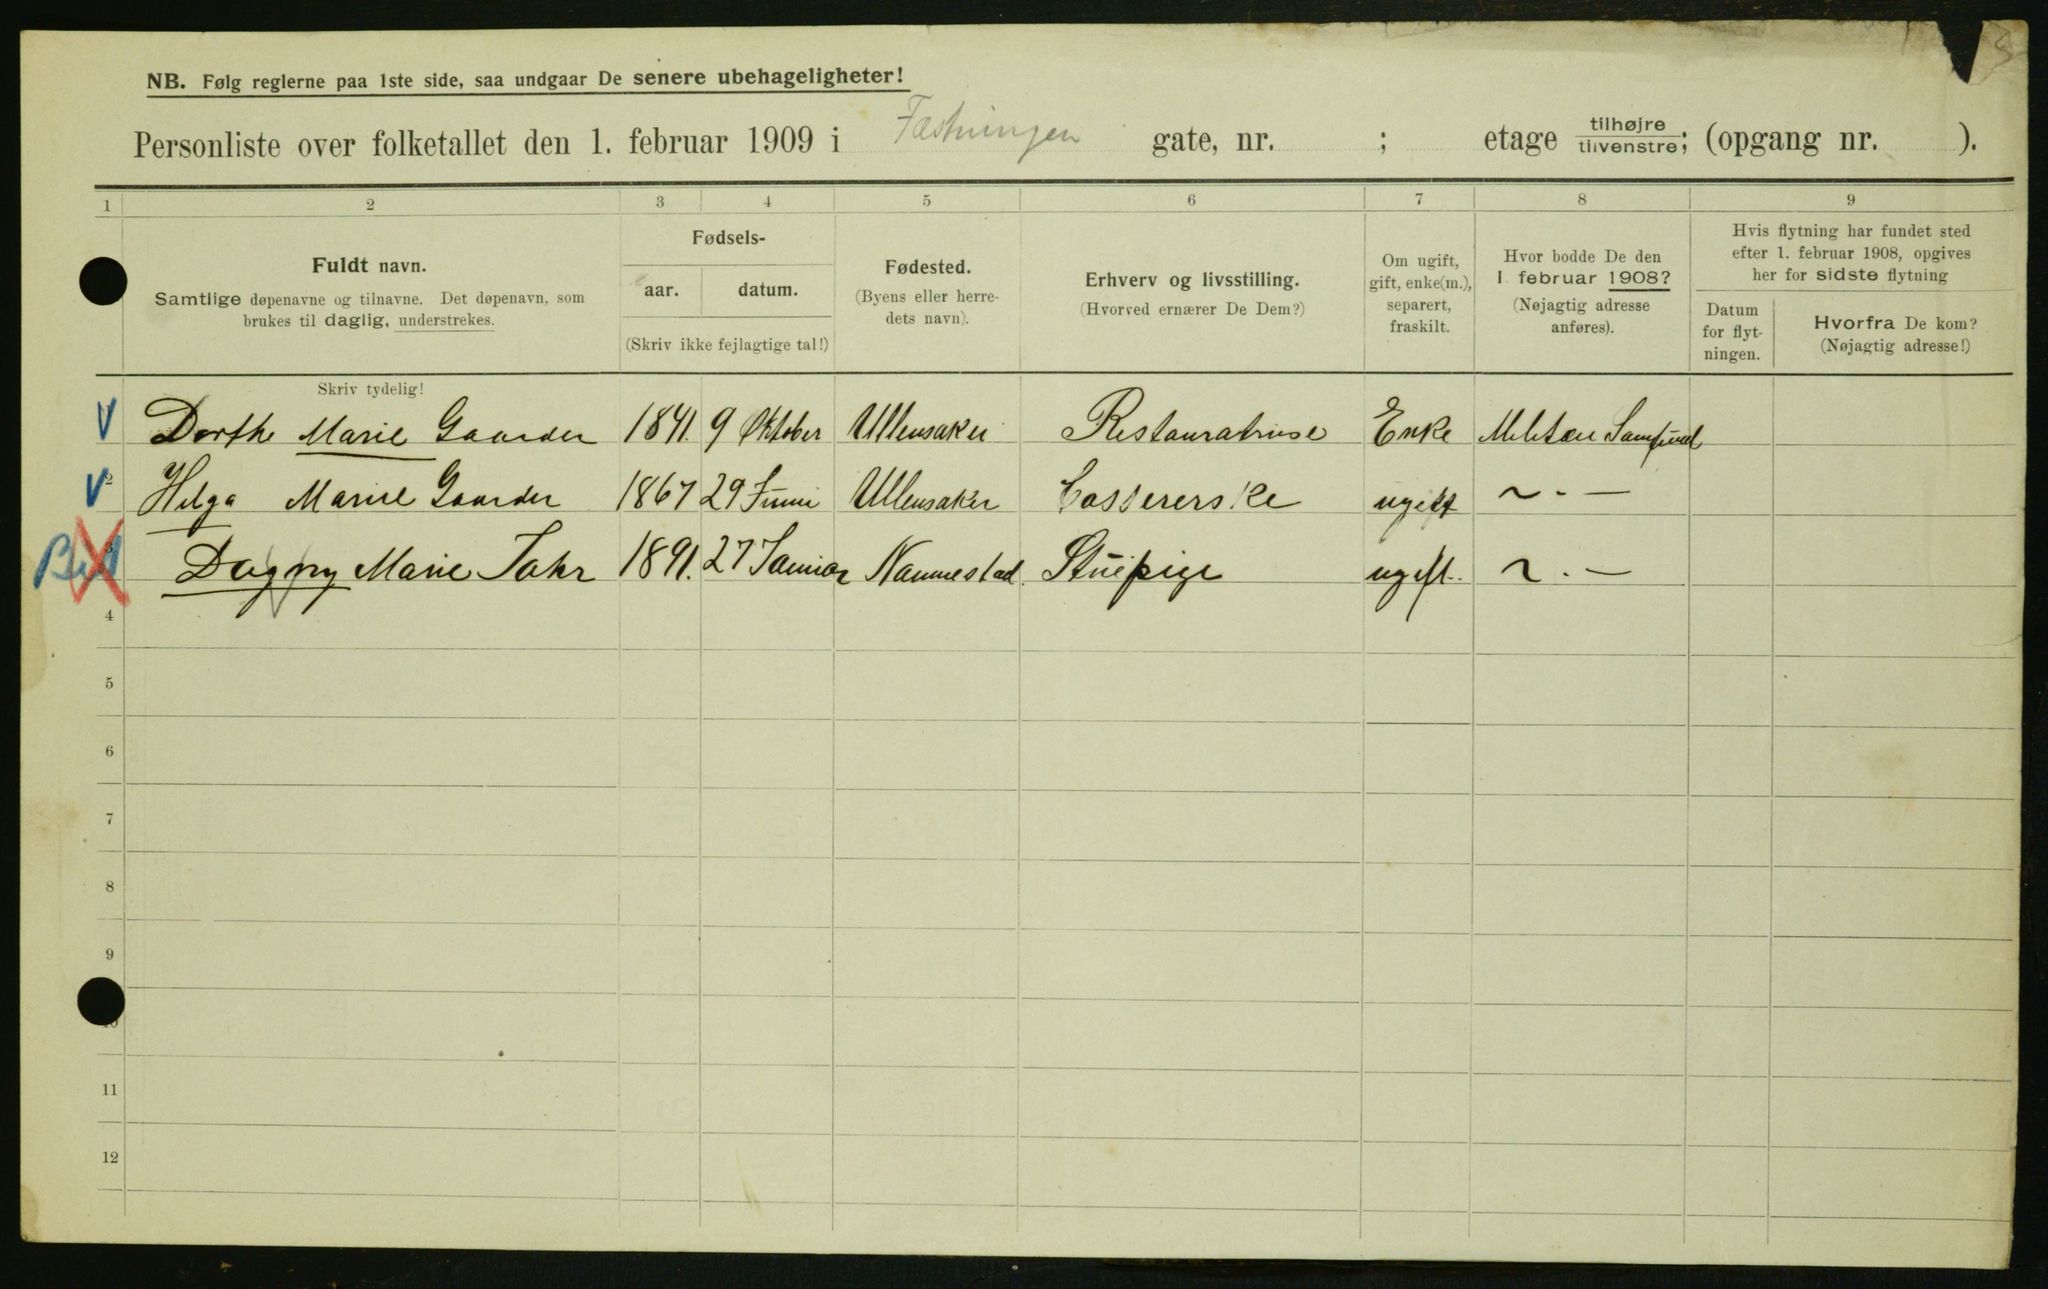 NB. Følg reglerne paa 1ste side, saa undgaar De senere ubehageligheter!
Personliste over folketallet den 1. februar 1909 i Fæstningen gate, nr. ; etage tilhøjre tilvenstre; (opgang nr. ).
1 2 3 4 5 6 7 8 9
Fuldt navn.
Samtlige døpenavne og tilnavne. Det døpenavn, som
brukes til daglig, understrekes.
Fødsels-
aar. datum.
(Skriv ikke fejlagtige tal!)
Fødested.
(Byens eller herre-
dets navn).
Erhverv og livsstilling.
(Hvorved ernærer De Dem?)
Om ugift,
gift, enke(m.),
separert,
fraskilt.
Hvor bodde De den
1. februar 1908?
(Nøjagtig adresse
anføres).
Hvis flytning har fundet sted
efter 1. februar 1908, opgives
her for sidste flytning
Datum
for flyt-
ningen.
Hvorfra De kom?
(Nøjagtig adresse!)
Skriv tydelig!
Dorthe Marie Gaarder 1841. 9 Oktober Ullensaker Restauratrise Enke Militær Samfund
2 Helga Marie Gaarder 1867 29 Juni Ullensaker Cassererske ugift ~ · —
3 Dagny Marie Jahr 1891. 27 Januar Nannestad. Stuepige ugift. ~ · —
4
5
6
7
8
9
10
11
12